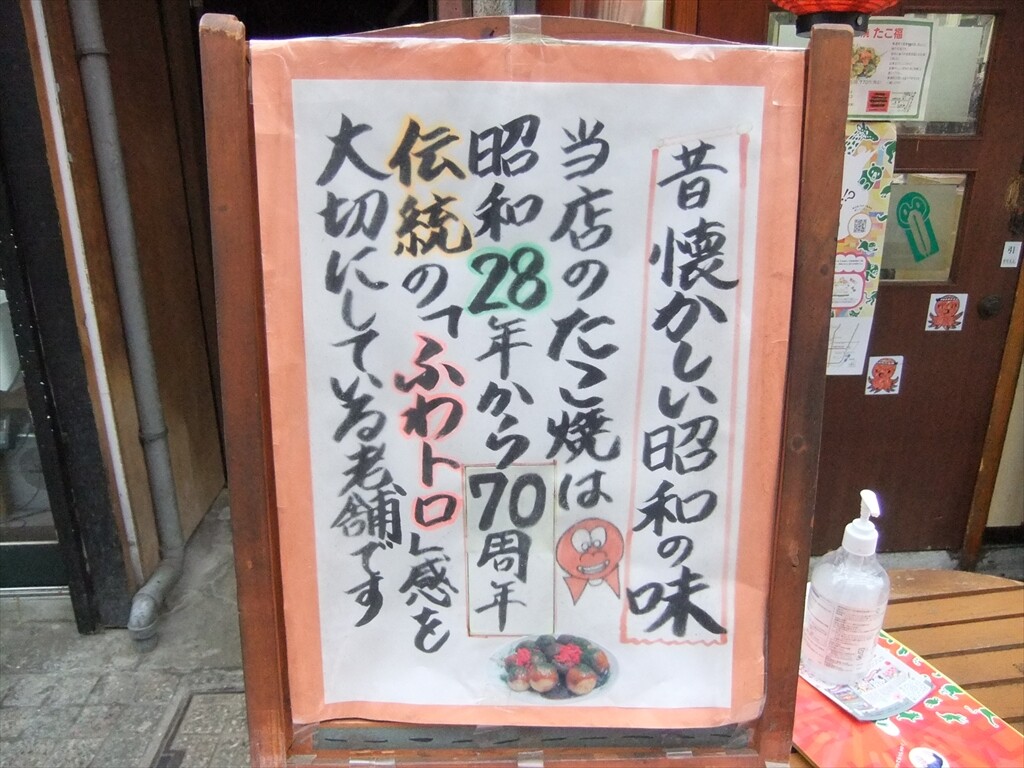 昔懐かしい昭和の味
当店のたこ焼は
昭和28年から70周年
伝統の「ふわトロ」感を
大切にしている老舗です
たこ福
引